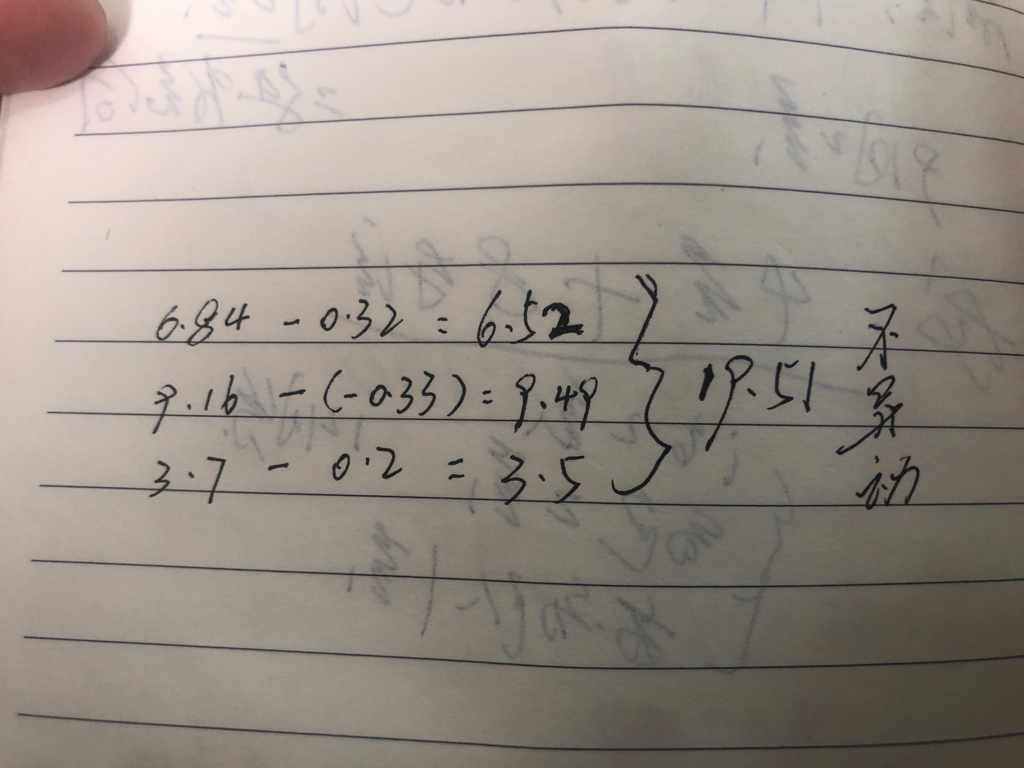 6.84 - 0.32 = 6.52
9.16 - (-0.33) = 9.49
3.7 - 0.2 = 3.5
19.51
不异动